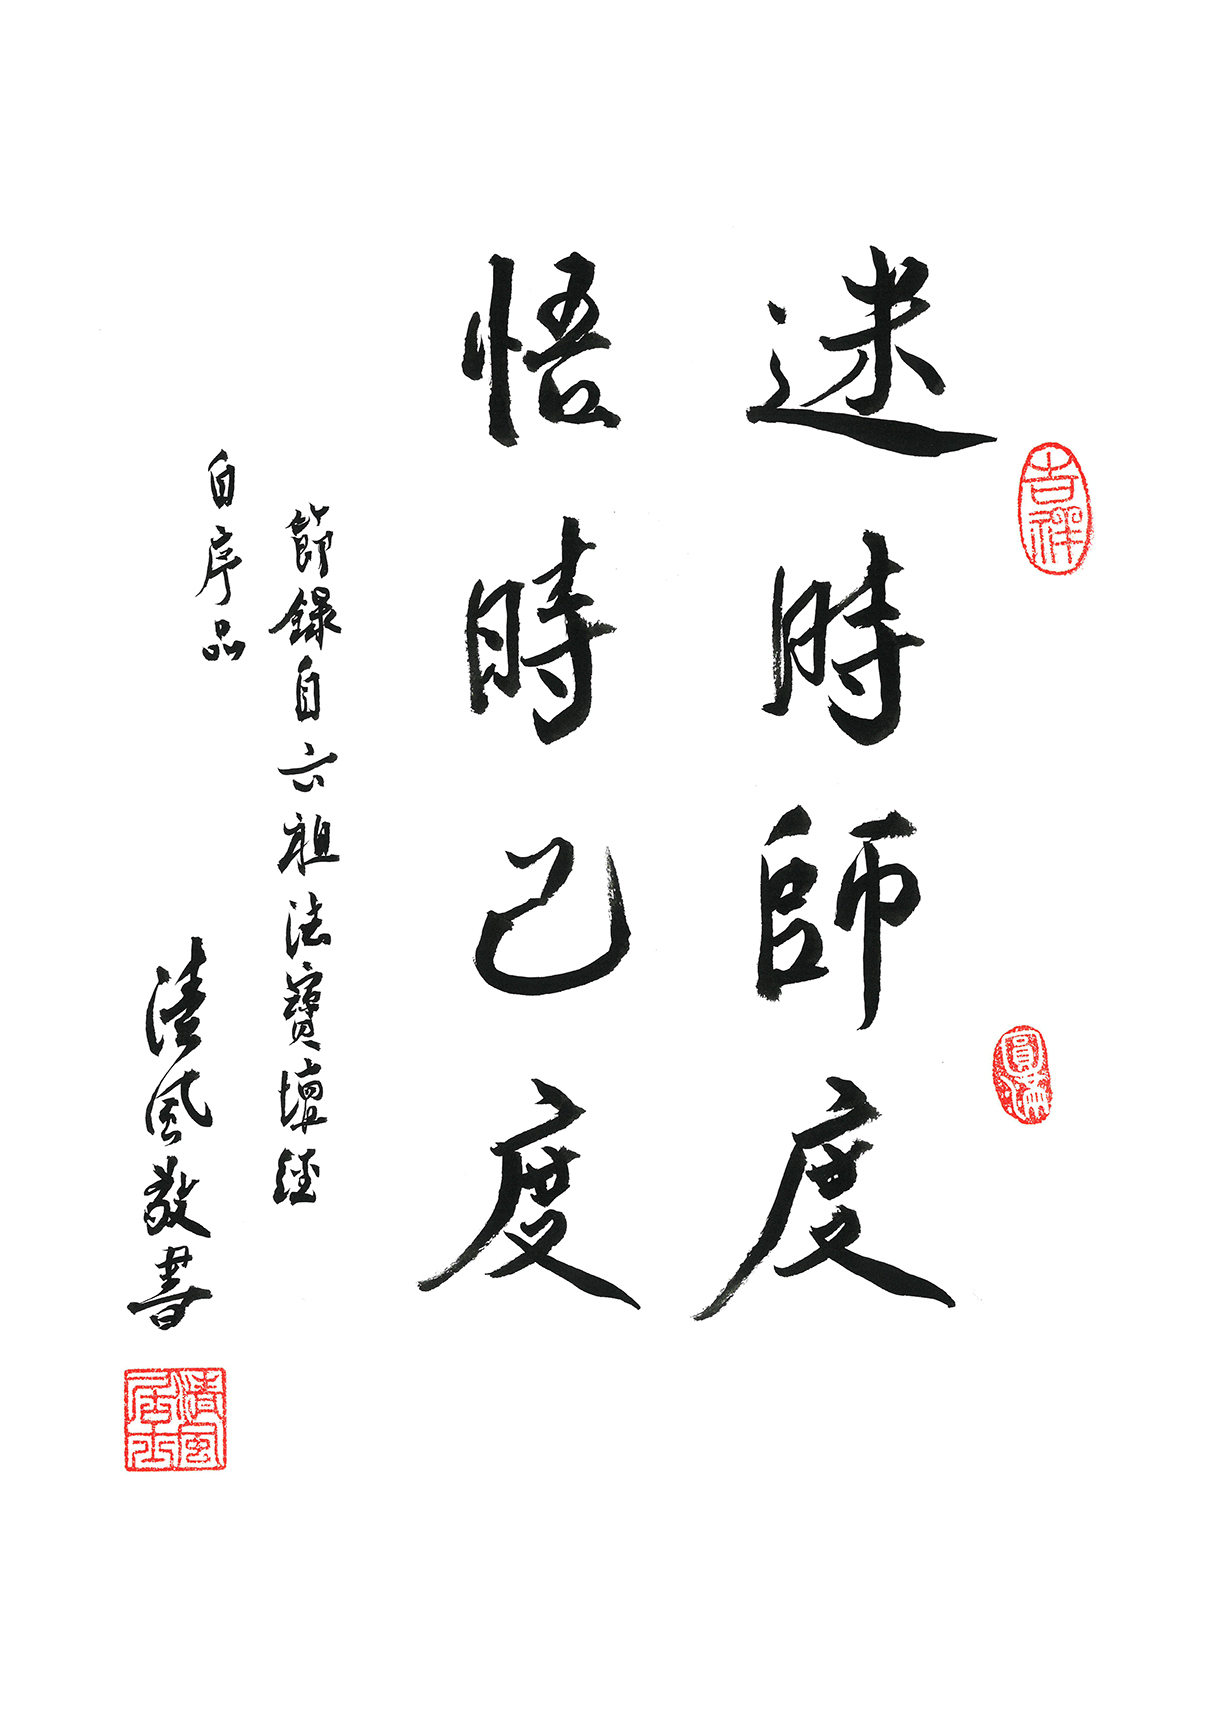 迷時師度
悟時己度
節錄自六祖法寶壇經
自序品
清風敬書
吉祥
圓滿
清風居士